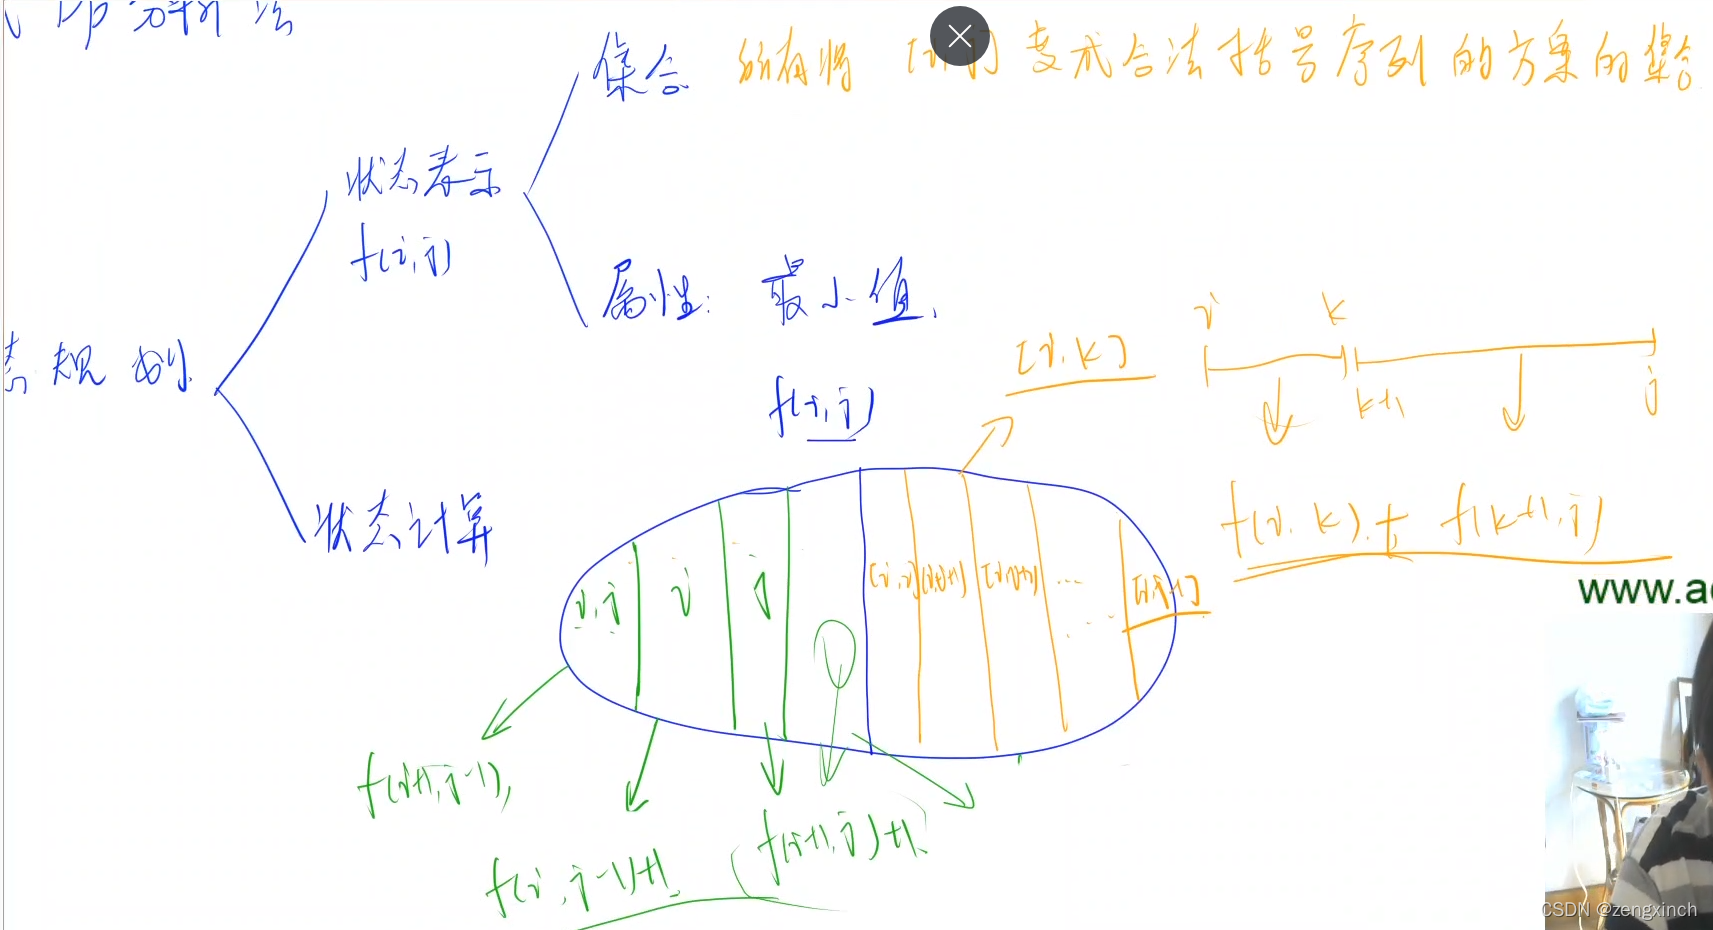 DP分析法
集合 所有将 [i,j]变成合法括号序列的方案的集合
状态表示
f(i,j)
属性: 最小值.
态规划
[i,k]
i k
k+1 j
f(i,j)
状态计算
f(i,k)+ f(k+1,j)
i,j i j [i,i] [i,i+1] ... [i,j-1]
www.a
f(i+1,j-1),
f(i,j-1)+1,
f(i+1,j)+1,
CSDN @zengxinch